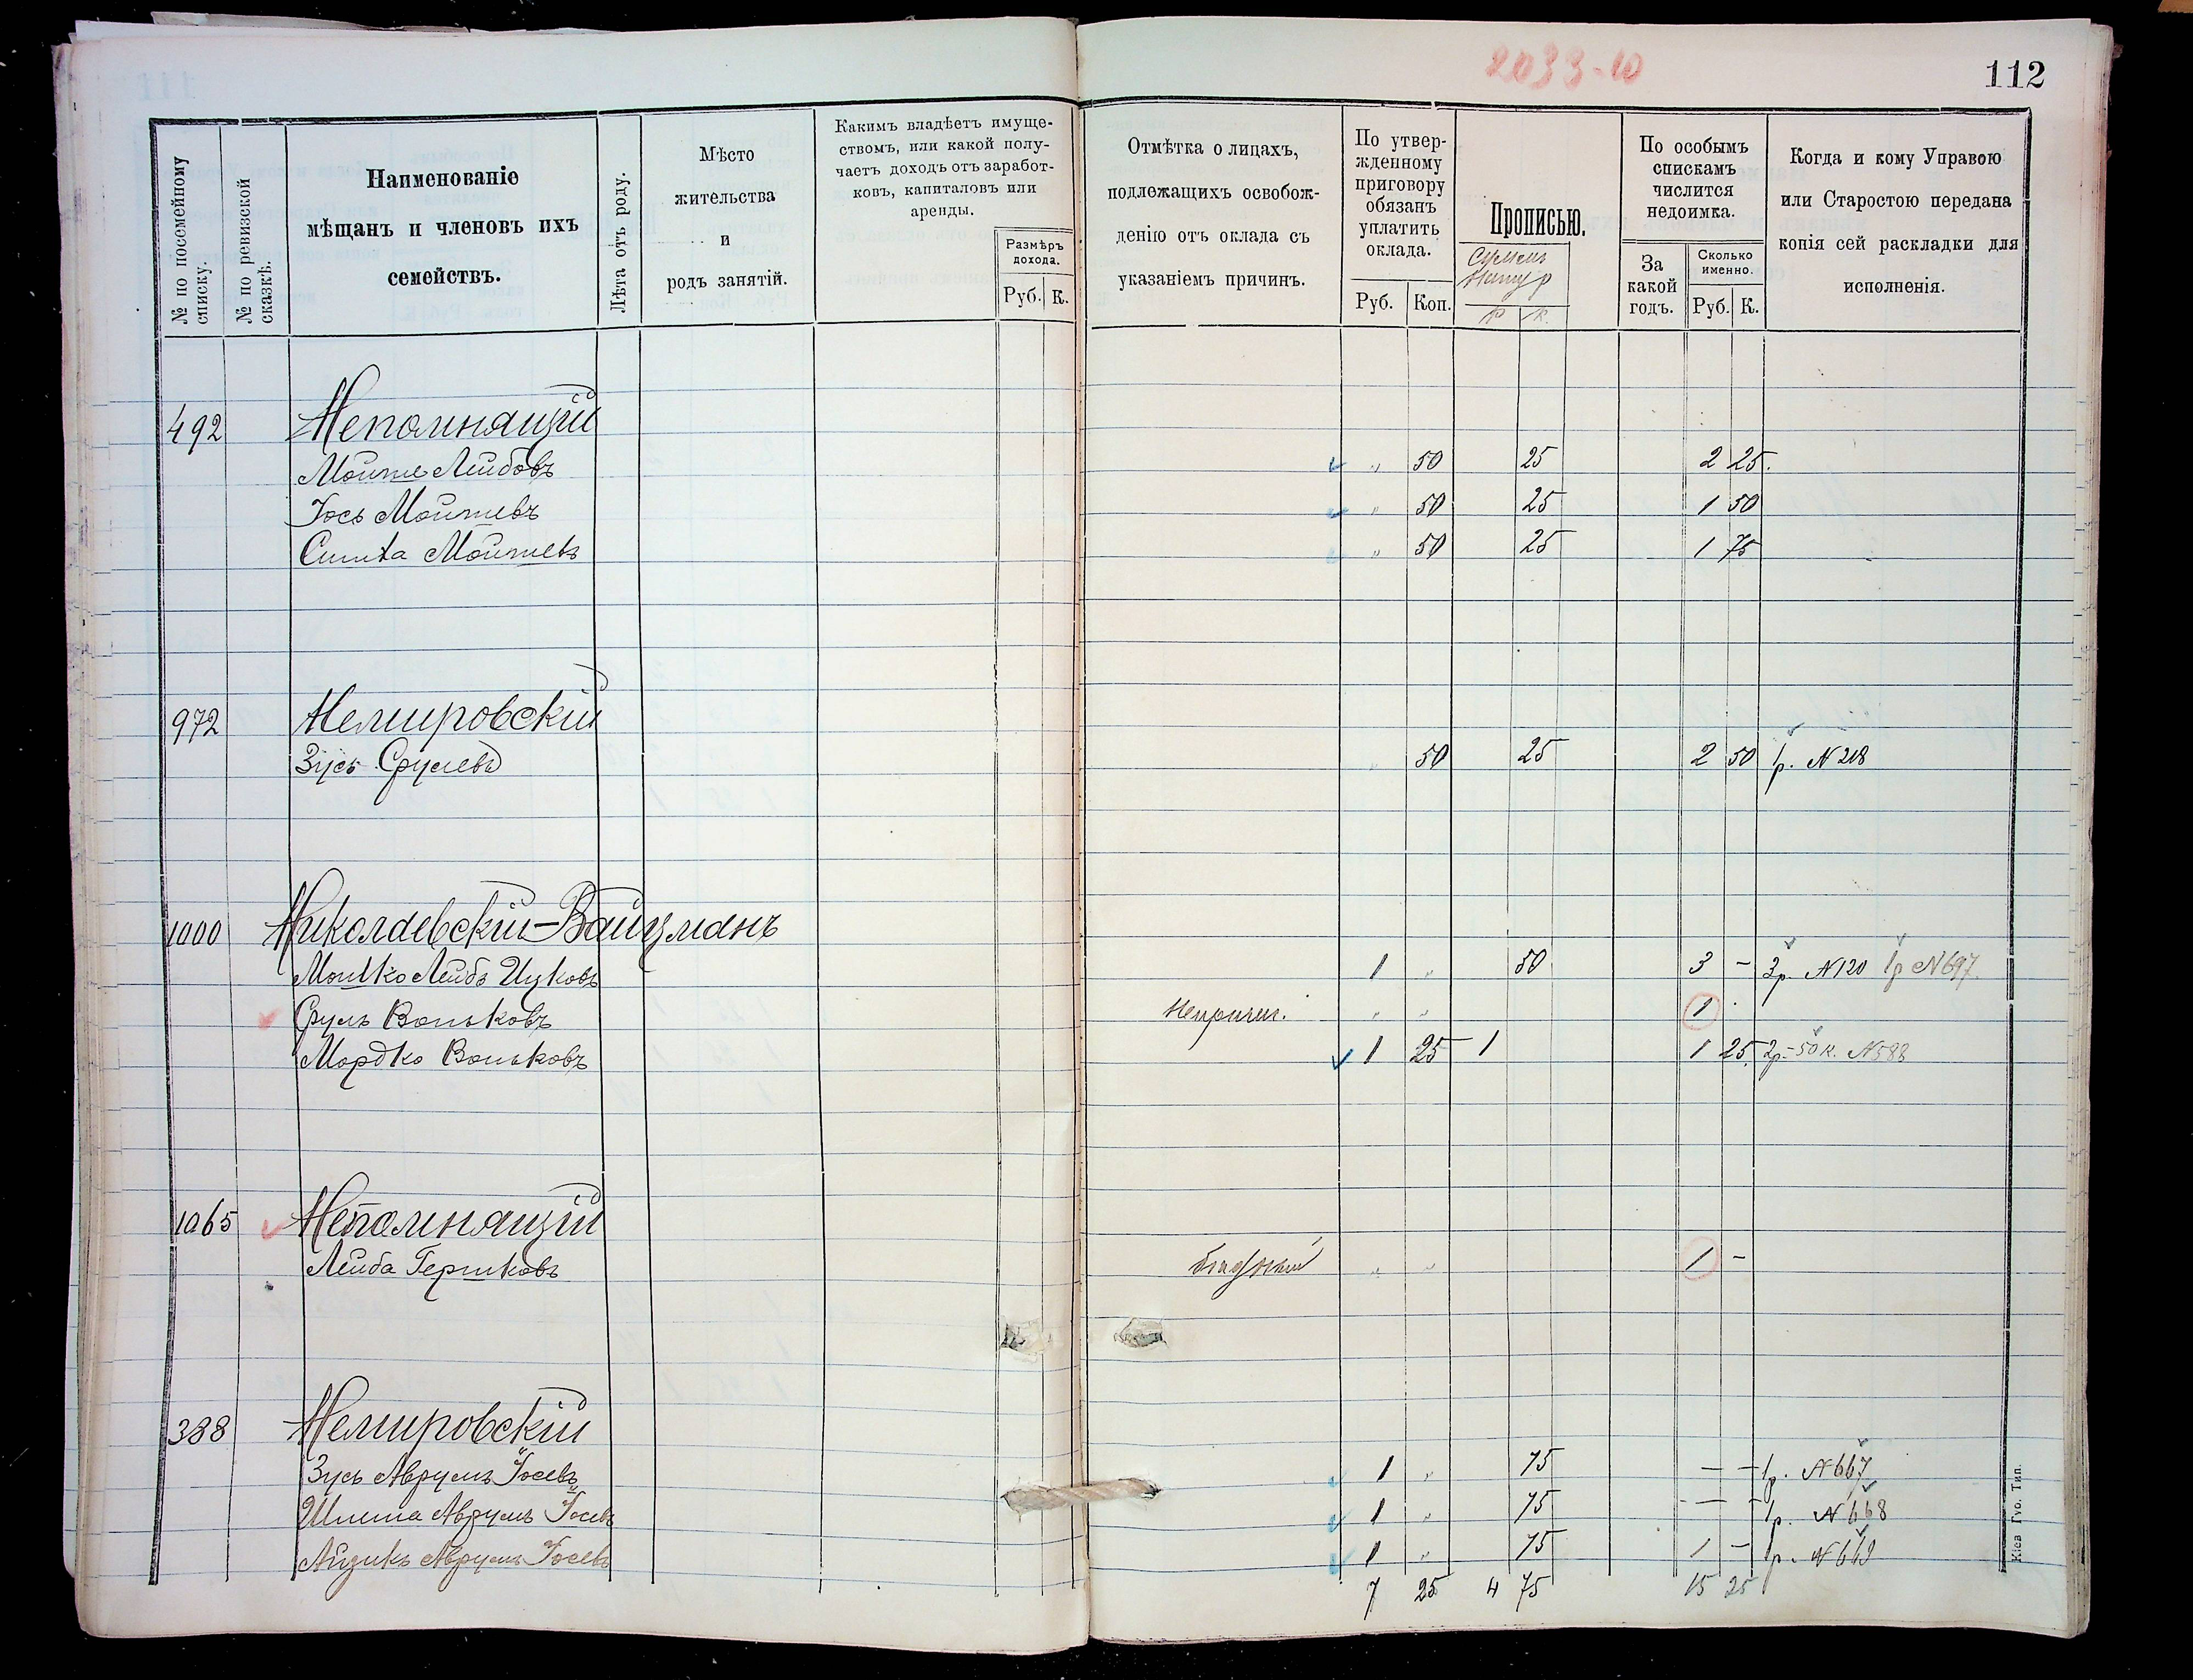 2033-10
112
№ по посемейному списку.
№ по ревизской сказкѣ.
Наименованіе
мѣщанъ и членовъ ихъ
семействъ.
Лѣта отъ роду.
Мѣсто
жительства
и
родъ занятій.
Какимъ владѣетъ имуще-
ствомъ, или какой полу-
чаетъ доходъ отъ заработ-
ковъ, капиталовъ или
аренды.
Размѣръ
дохода.
Руб. К.
Отмѣтка о лицахъ,
подлежащихъ освобож-
денію отъ оклада съ
указаніемъ причинъ.
По утвер-
жденному
приговору
обязанъ
уплатить
оклада.
Руб. Коп.
Прописью.
Р К.
По особымъ
спискамъ
числится
недоимка.
За
какой
годъ.
Сколько
именно.
Руб. К.
Когда и кому Управою
или Старостою передана
копія сей раскладки для
исполненія.
492 Непомнящій
Мойше Лейбовъ „ 50 25 2 25.
Іось Мойшевъ „ 50 25 1 50
Симха Мойшевъ „ 50 25 1 75
972 Немировскій
Зусь Срулевъ „ 50 25 2 50 1р. N 218
1000 Николаевскій-Вайцманъ
Мошко Лейбъ Ицковъ 1 „ 50 3 - 3р. N 120 1р N 697.
Сруль Вольковъ „ „ 1
Мордко Вольковъ 1 25 1 1 25 2р.-50к. N 588
1065 Непомнящій
Лейба Гершковъ „ „ 1 -
388 Немировскій
Зусь Аврумъ Іосевъ 1 „ 75 - - 1р. N 667
Шлема Аврумъ Іосевъ 1 „ 75 - - 1р. N 668
Айзикъ Аврумъ Іосевъ 1 „ 75 1 - 1р. N 669
7 25 4 75 15 25